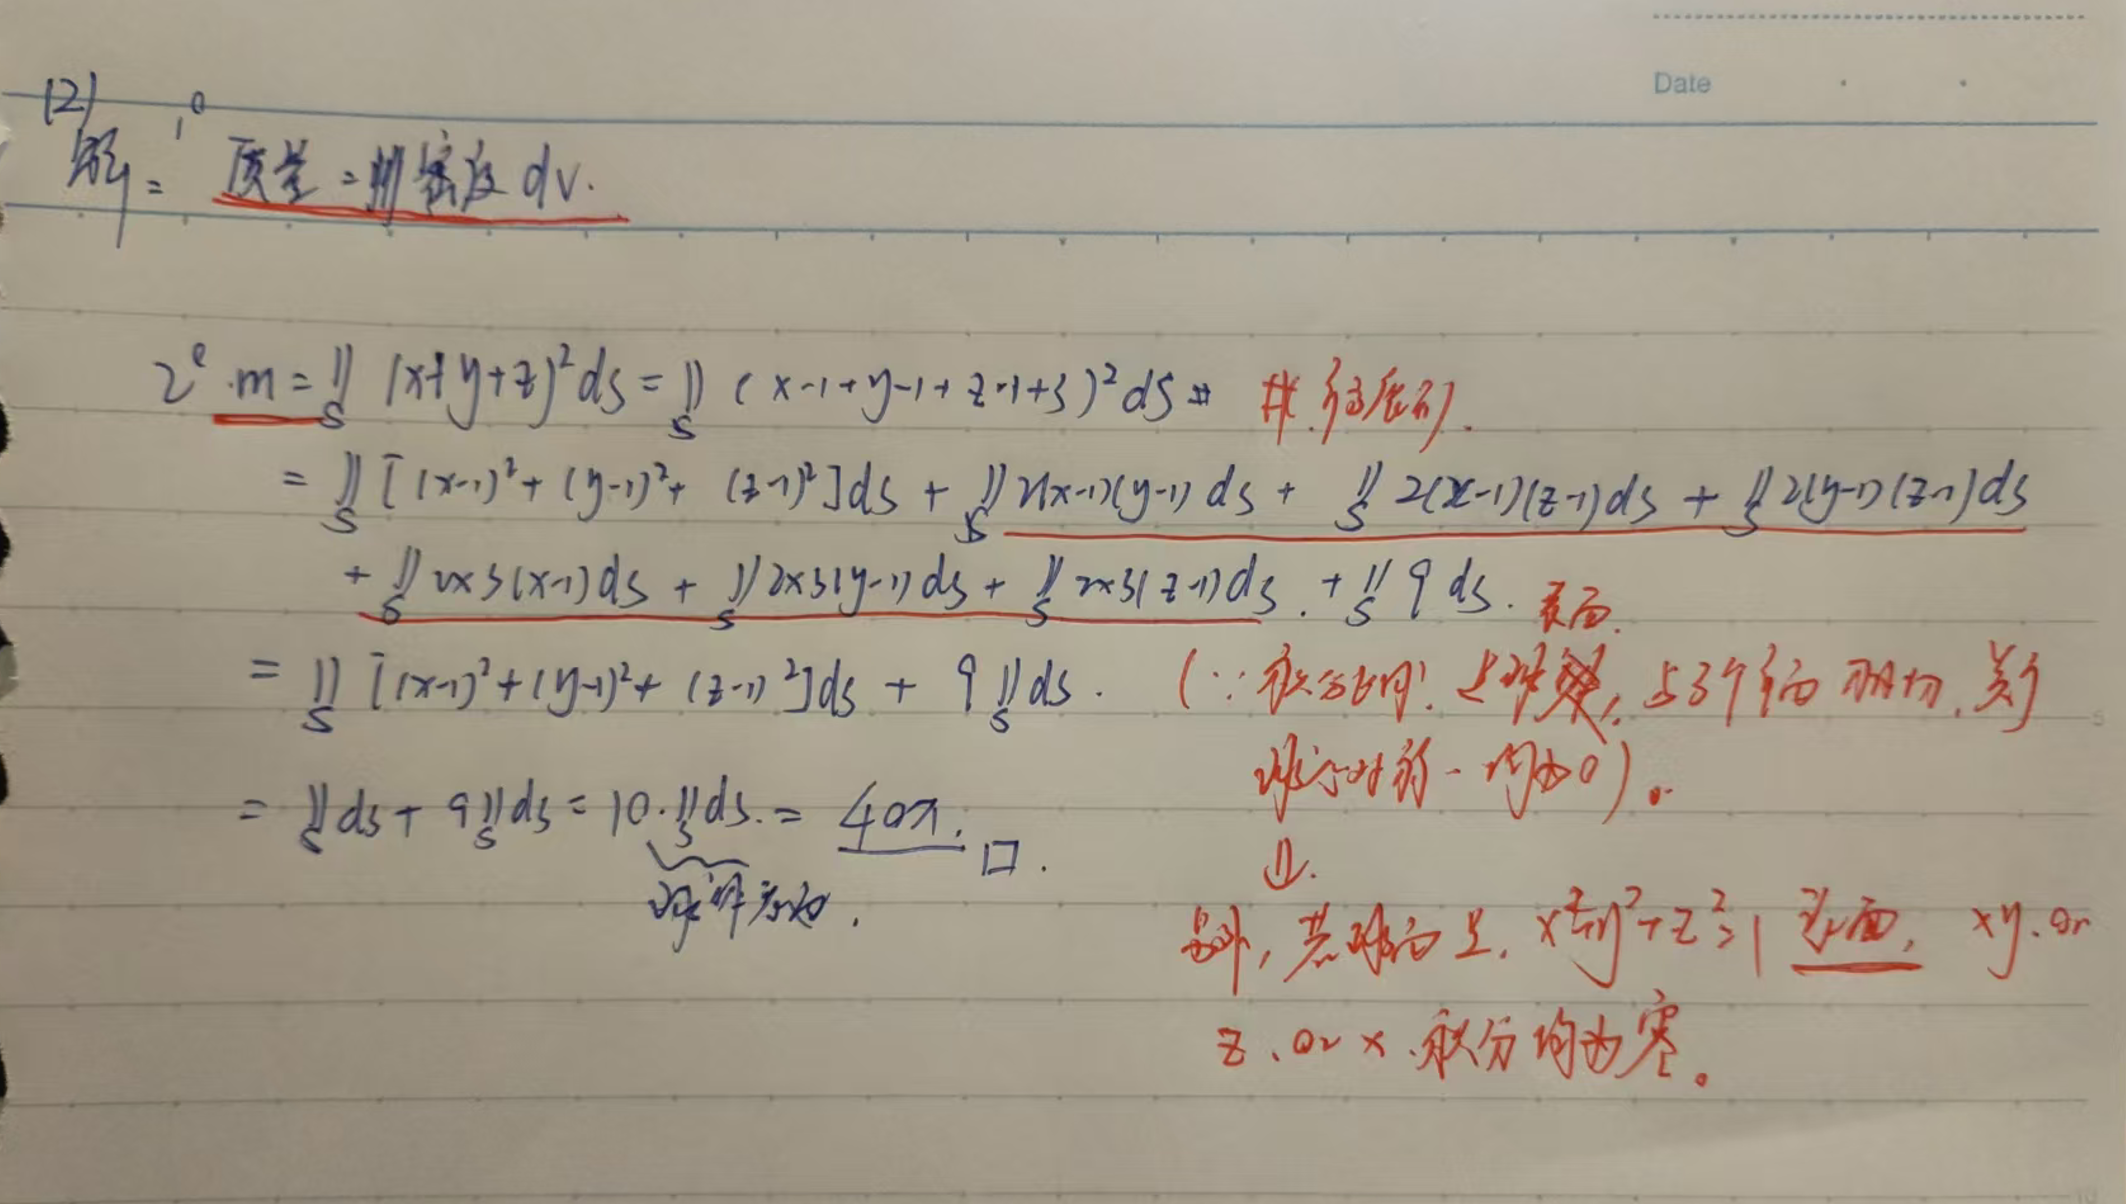 Date
(2)
解: 1° 质量=∭密度dv.
2° m=∬_S (x+y+z)²ds=∬_S (x-1+y-1+z-1+3)²ds #
=∬_S [(x-1)²+(y-1)²+(z-1)²]ds+∬_S 2(x-1)(y-1)ds+∬_S 2(x-1)(z-1)ds+∬_S 2(y-1)(z-1)ds
+∬_S 2×3(x-1)ds+∬_S 2×3(y-1)ds+∬_S 2×3(z-1)ds.+∬_S 9ds. 表面.
=∬_S [(x-1)²+(y-1)²+(z-1)²]ds+9∬_S ds. (∵ 与3个面相切,关于
球心对称-均为0).
=∬_S ds+9∬_S ds=10·∬_S ds.=40π. □.
⇓.
另外,若球面上,x²+y²+z²=1表面,xy.or
z.or x.积分均为零。